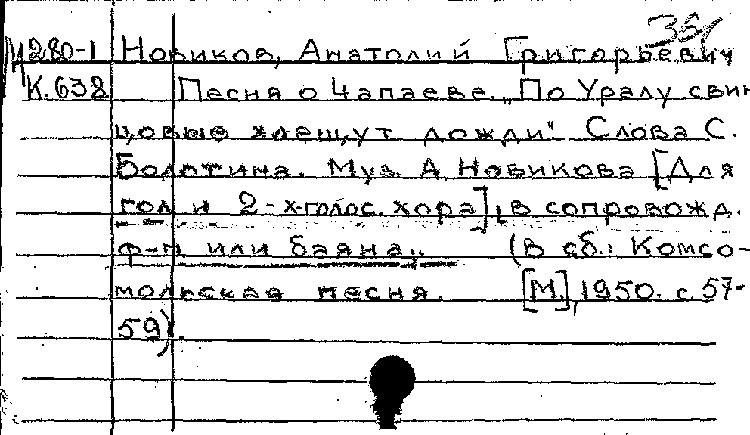 М280-1 Новиков, Анатолий Григорьевич
К.638 Песня о Чапаеве. „По Уралу свин
цовые хлещут дожди". Слова С.
Болотина. Муз. А. Новикова [Для
гол и 2-х-голос. хора], в сопровожд.
ф-п или баяна.. (В сб.: Комсо-
мольская песня. [М], 1950. с. 57-
59).